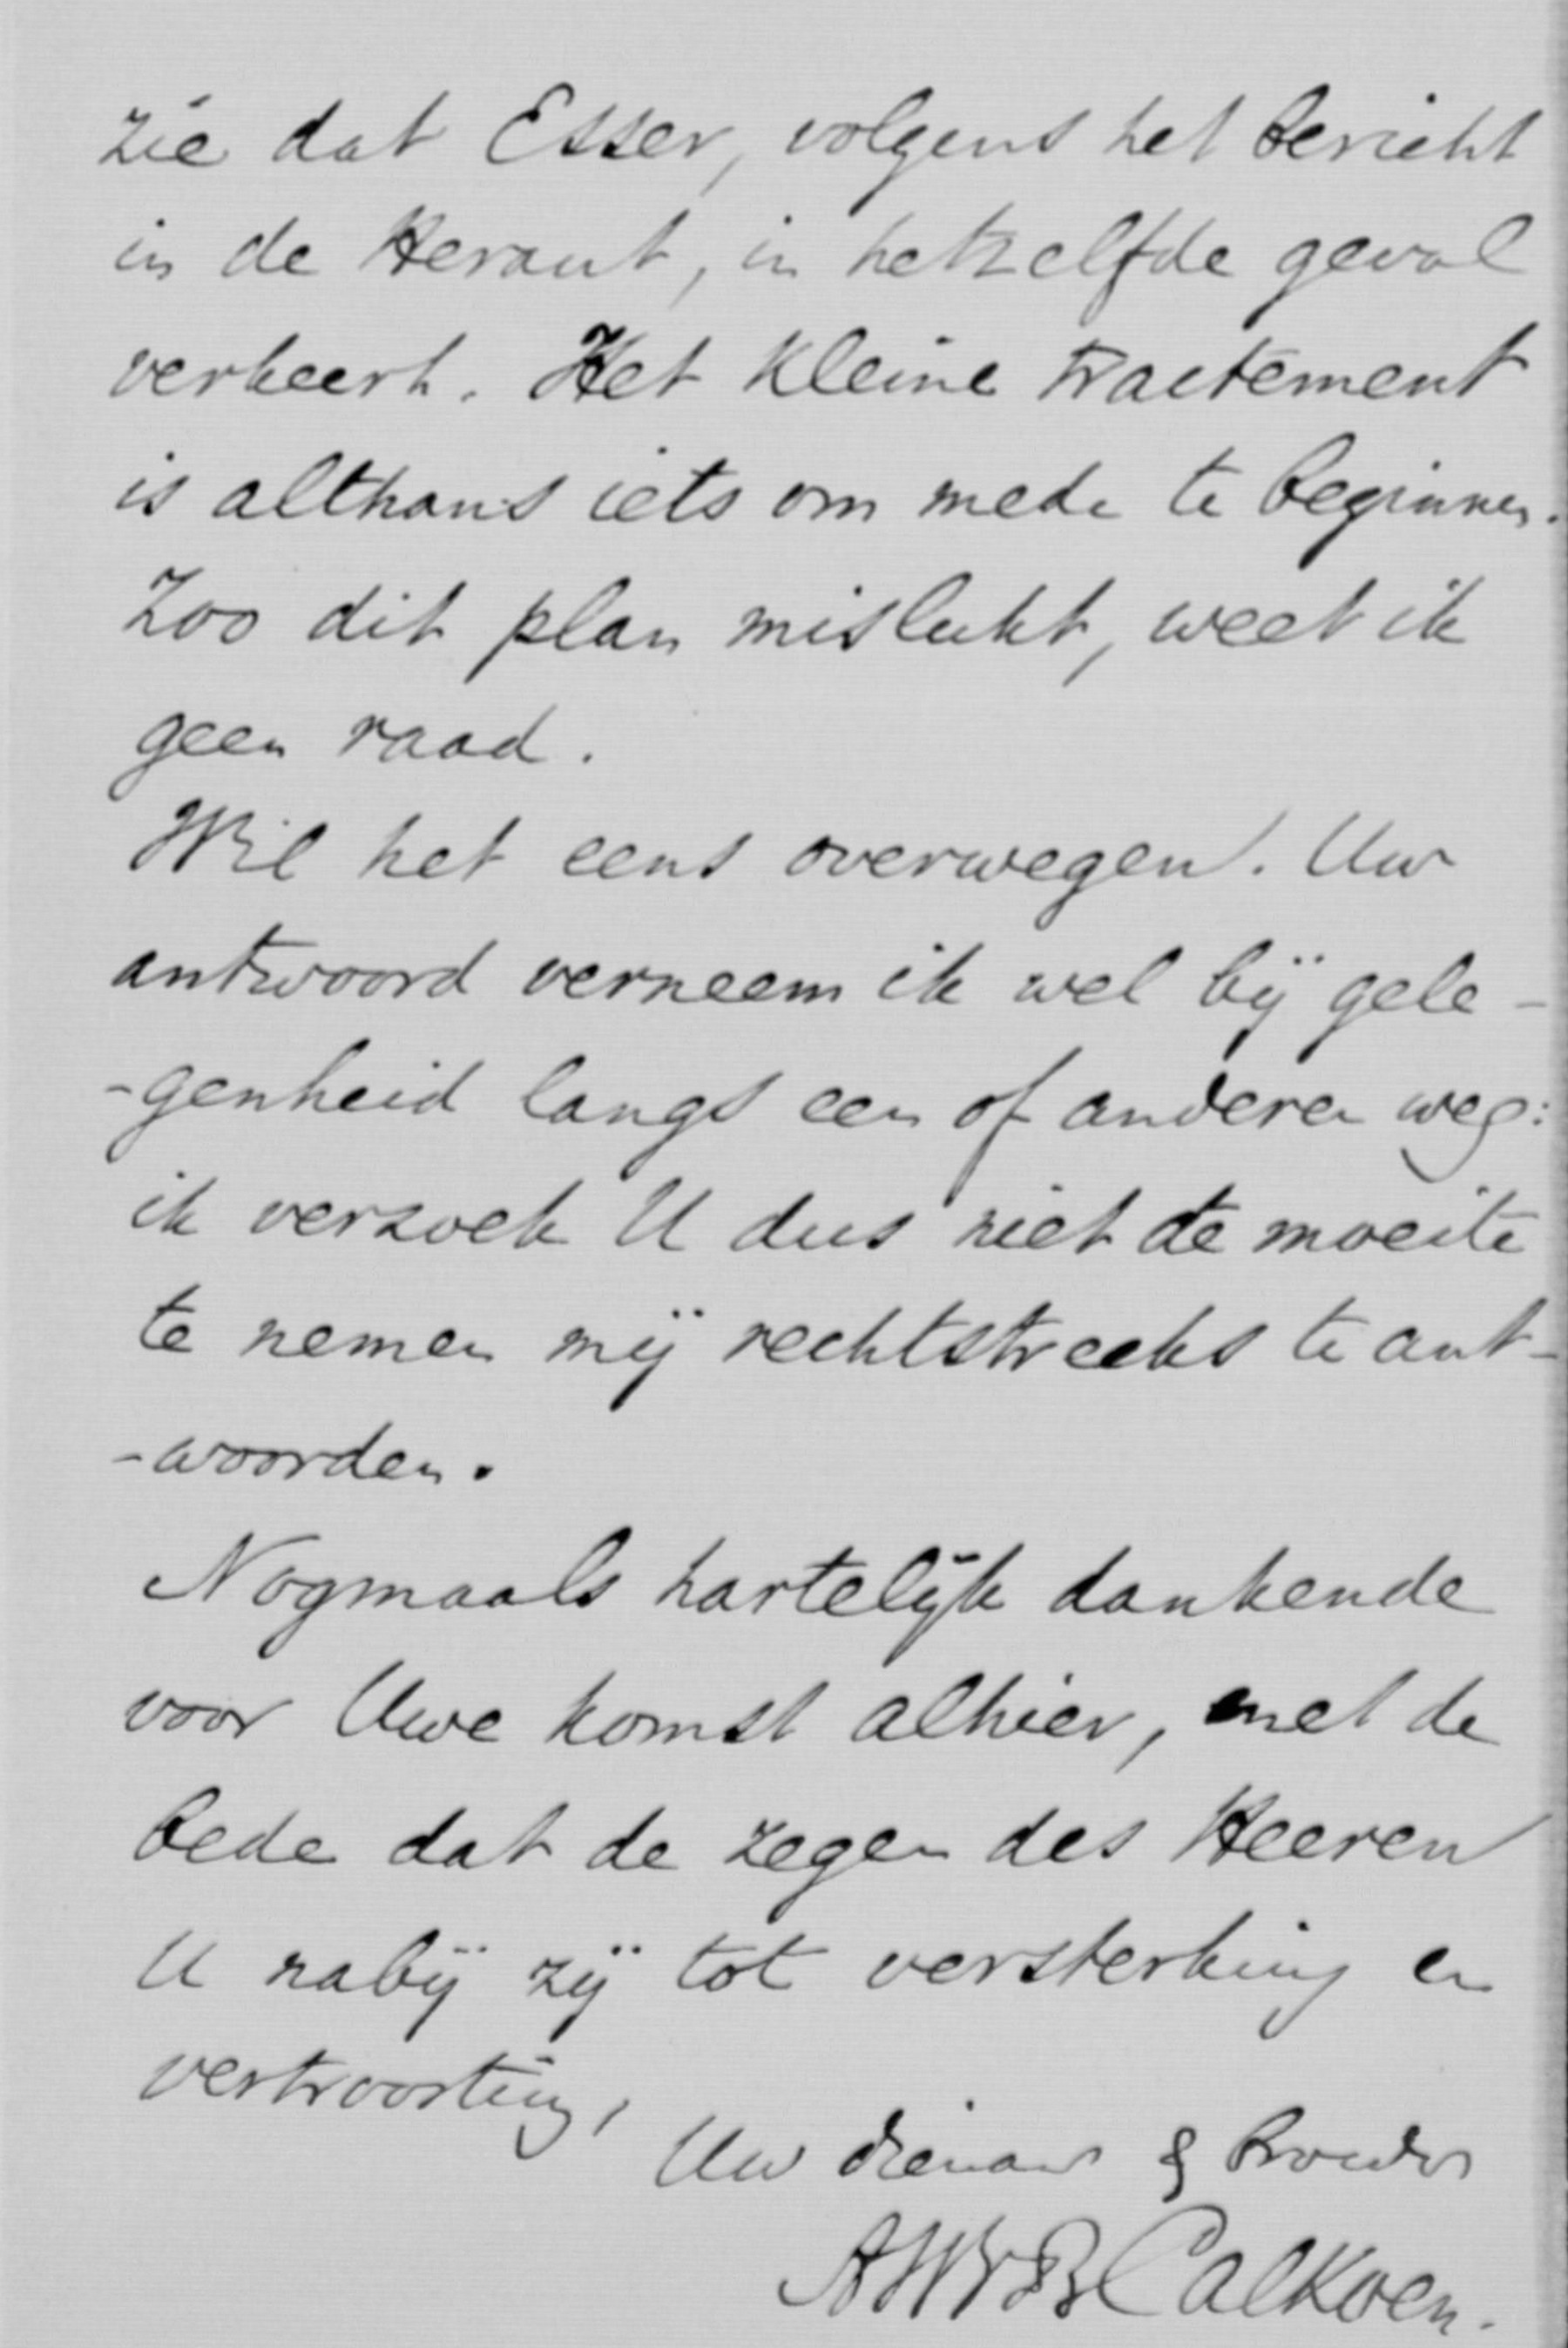 zie dat Esser, volgens het bericht
in de Heraut, in hetzelfde geval
verkeert. Het kleine tractement
is althans iets om mede te beginnen.
Zoo dit plan mislukt, weet ik
geen raad.
Wil het eens overwegen. Uw
antwoord verneem ik wel bij gele-
-genheid langs een of anderen weg:
ik verzoek U dus niet de moeite
te nemen mij rechtstreeks te ant-
-woorden.
Nogmaals hartelijk dankende
voor Uwe komst alhier, met de
bede dat de zegen des Heeren
U nabij zij tot versterking en
vertroosting,
Uw dienaar & broeder
AWvBCalkoen.